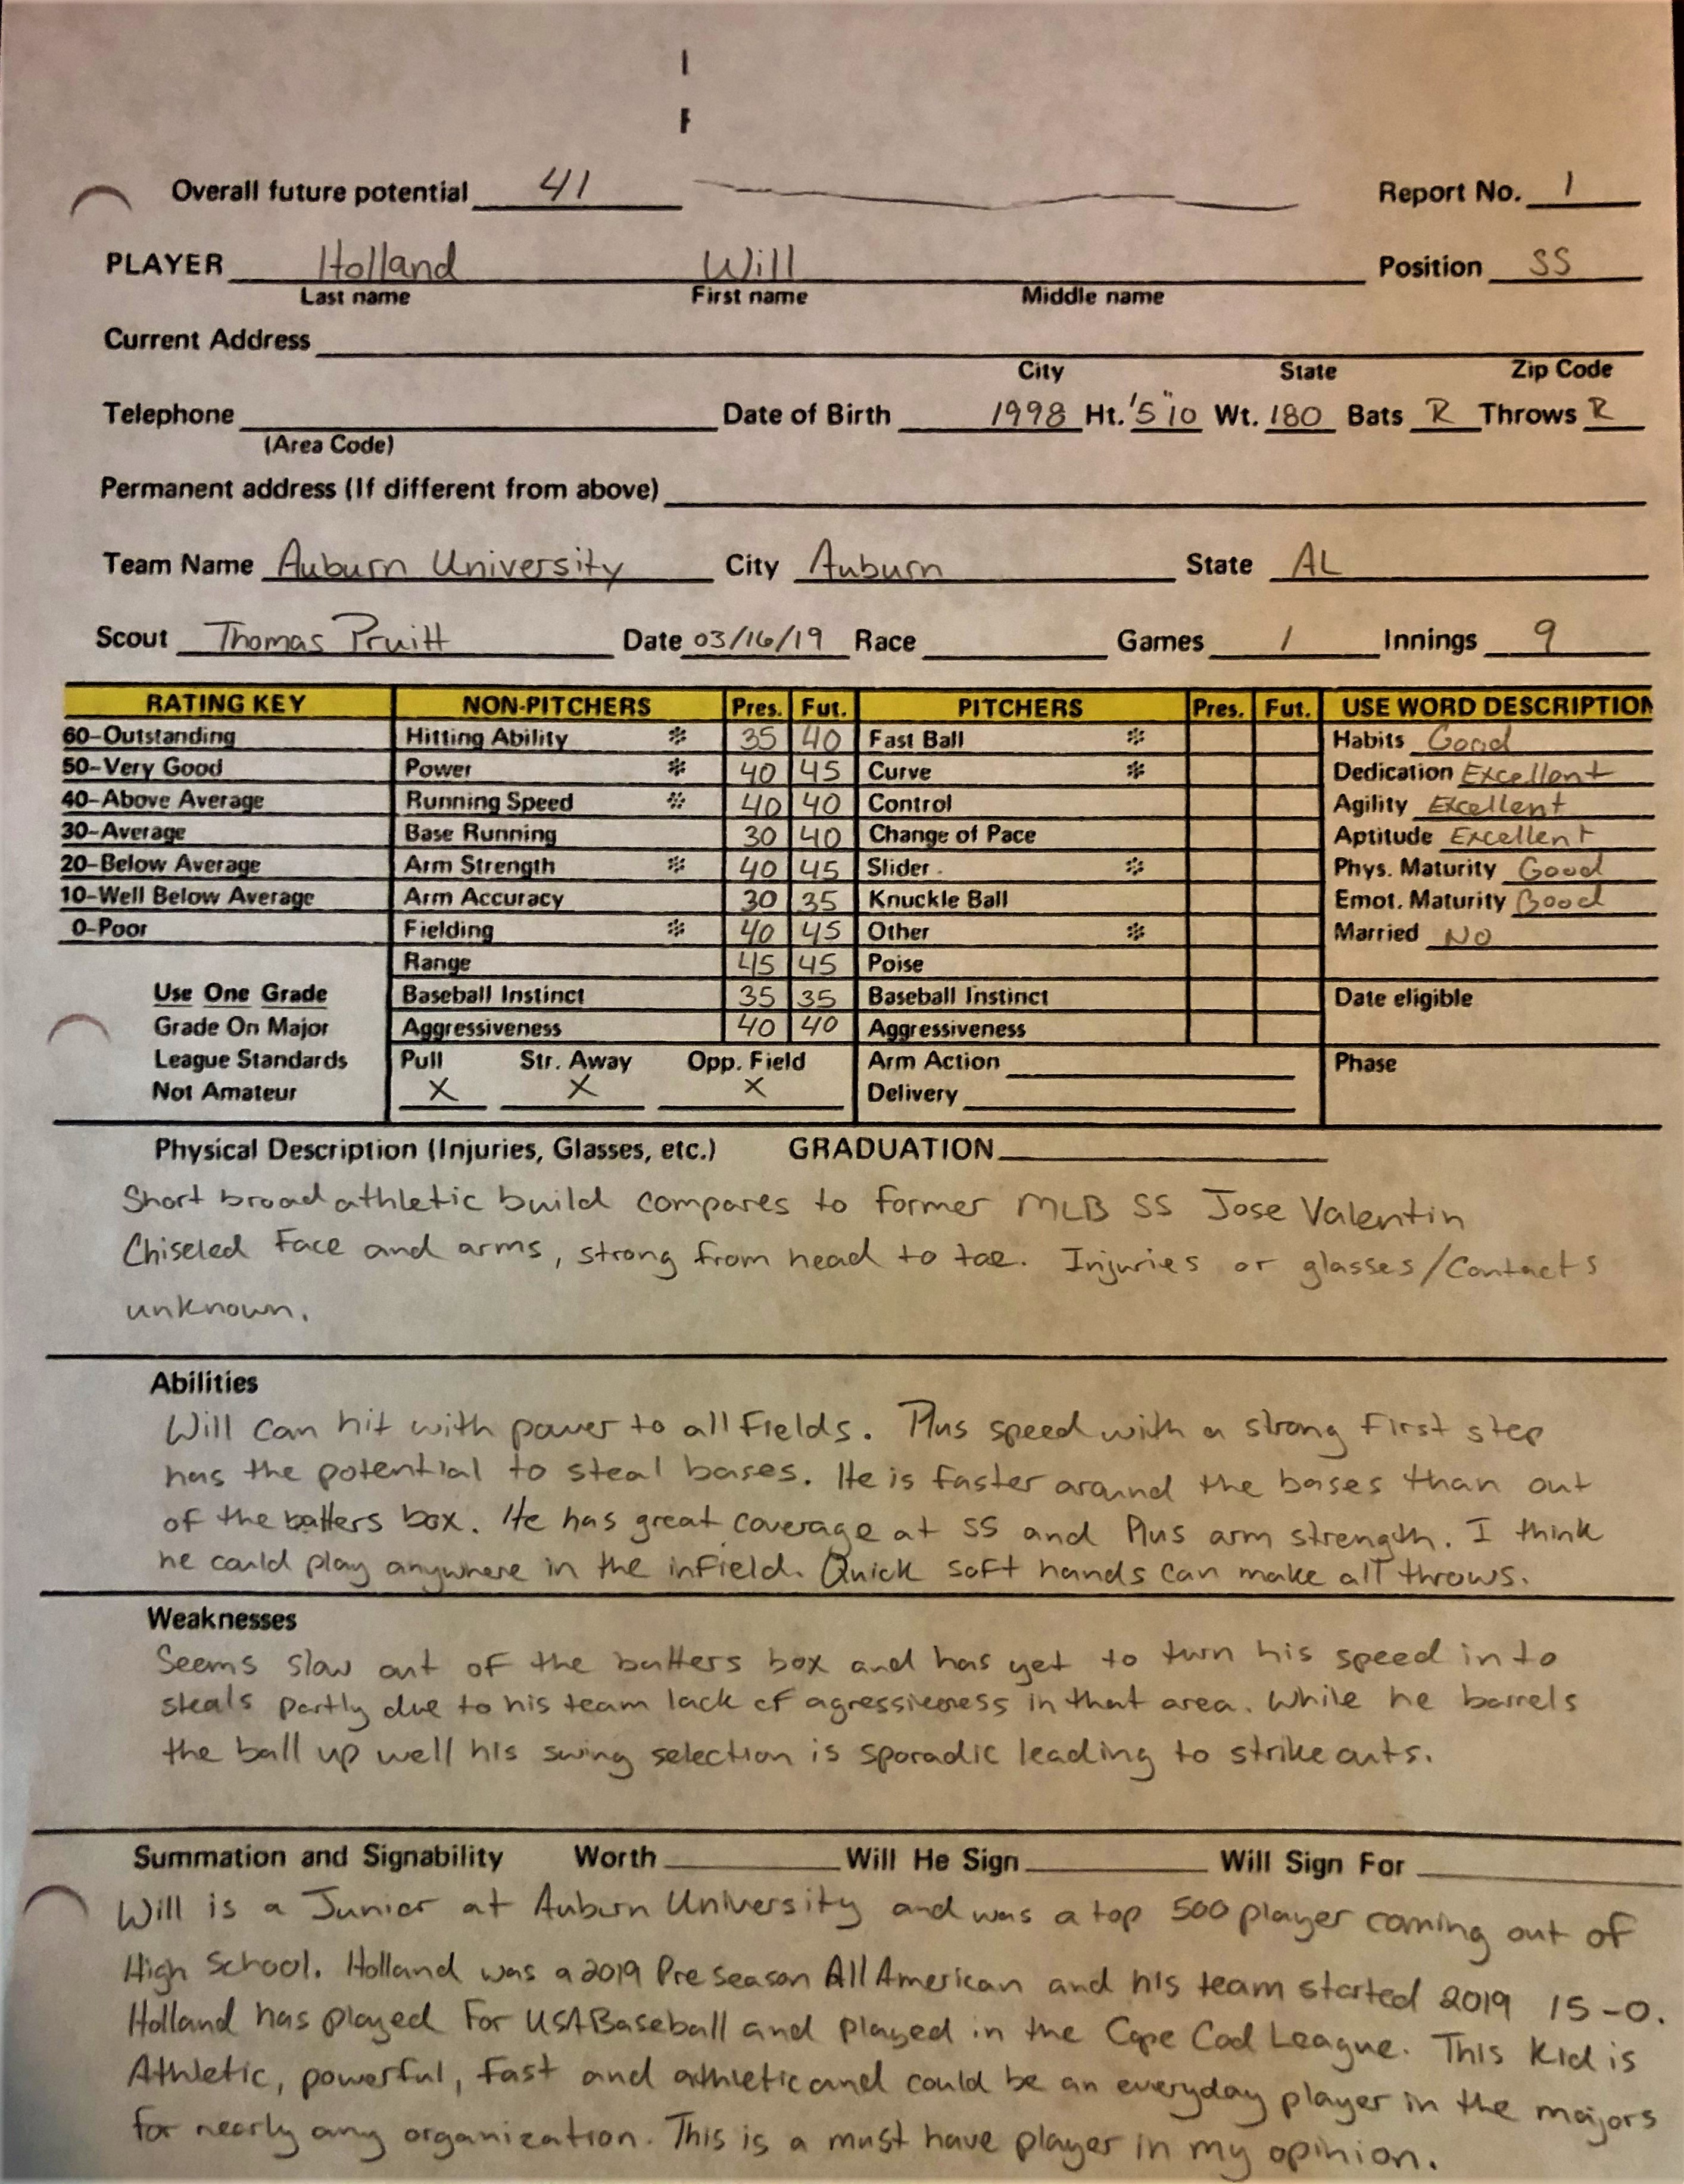 Overall future potential 41 Report No. 1
PLAYER Holland Will Position SS
Last name First name Middle name
Current Address
City State Zip Code
Telephone Date of Birth 1998 Ht. '5"10 Wt. 180 Bats R Throws R
(Area Code)
Permanent address (If different from above)
Team Name Auburn University City Auburn State AL
Scout Thomas Pruitt Date 03/16/19 Race Games 1 Innings 9
RATING KEY NON-PITCHERS Pres. Fut. PITCHERS Pres. Fut. USE WORD DESCRIPTION
60-Outstanding Hitting Ability * 35 40 Fast Ball * Habits Good
50-Very Good Power * 40 45 Curve * Dedication Excellent
40-Above Average Running Speed * 40 40 Control Agility Excellent
30-Average Base Running 30 40 Change of Pace Aptitude Excellent
20-Below Average Arm Strength * 40 45 Slider * Phys. Maturity Good
10-Well Below Average Arm Accuracy 30 35 Knuckle Ball Emot. Maturity Good
0-Poor Fielding * 40 45 Other * Married No
Range 45 45 Poise
Use One Grade Baseball Instinct 35 35 Baseball Instinct Date eligible
Grade On Major Aggressiveness 40 40 Aggressiveness
League Standards Pull Str. Away Opp. Field Arm Action Phase
Not Amateur X X X Delivery
Physical Description (Injuries, Glasses, etc.) GRADUATION
Short broad athletic build compares to former MLB SS Jose Valentin
Chiseled Face and arms, strong from head to toe. Injuries or glasses/Contacts
unknown.
Abilities
Will can hit with power to all fields. Plus speed with a strong first step
has the potential to steal bases. He is faster around the bases than out
of the batters box. He has great coverage at SS and Plus arm strength. I think
he could play anywhere in the infield. Quick soft hands can make all throws.
Weaknesses
Seems slow out of the batters box and has yet to turn his speed in to
steals partly due to his team lack of agressieness in that area. While he barrels
the ball up well his swing selection is sporadic leading to strike outs.
Summation and Signability Worth Will He Sign Will Sign For
Will is a Junior at Auburn University and was a top 500 player coming out of
High School. Holland was a 2019 Pre season All American and his team started 2019 15-0.
Holland has played For USA Baseball and played in the Cape Cod League. This kid is
Athletic, powerful, fast and athletic and could be an everyday player in the majors
for nearly any organization. This is a must have player in my opinion.